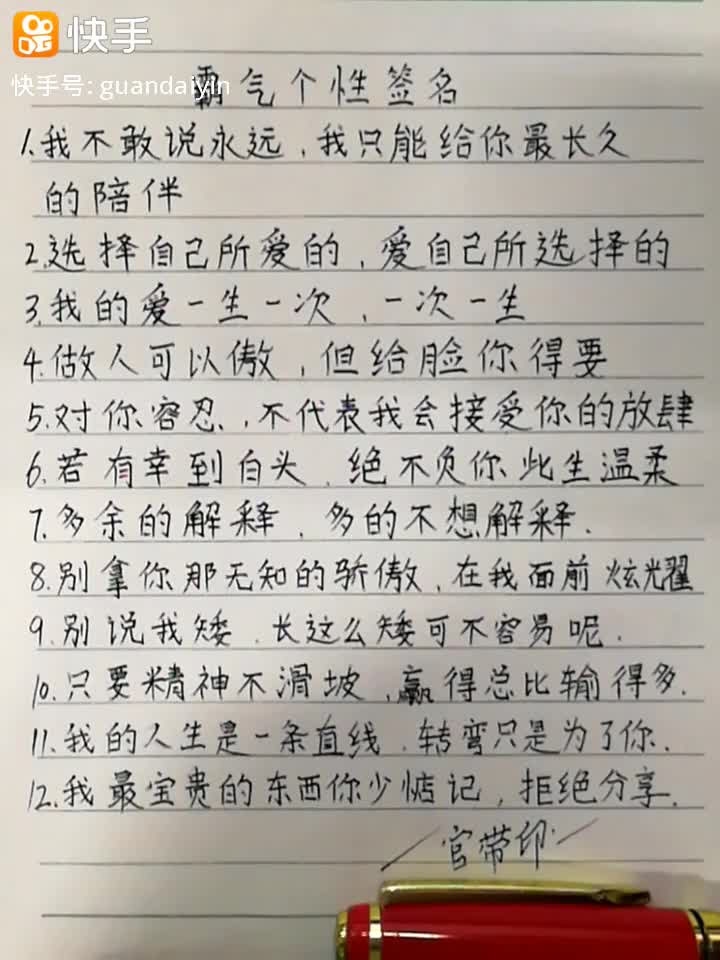 快手
快手号: guandaiyin
霸气个性签名
1.我不敢说永远,我只能给你最长久
的陪伴
2.选择自己所爱的,爱自己所选择的
3.我的爱一生一次,一次一生
4.做人可以傲,但给脸你得要
5.对你容忍,不代表我会接受你的放肆
6.若有幸到白头,绝不负你此生温柔
7.多余的解释,多的不想解释.
8.别拿你那无知的骄傲,在我面前炫耀
9.别说我矮,长这么矮可不容易呢.
10.只要精神不滑坡,赢得总比输得多.
11.我的人生是一条直线,转弯只是为了你.
12.我最宝贵的东西你少惦记,拒绝分享.
官带印